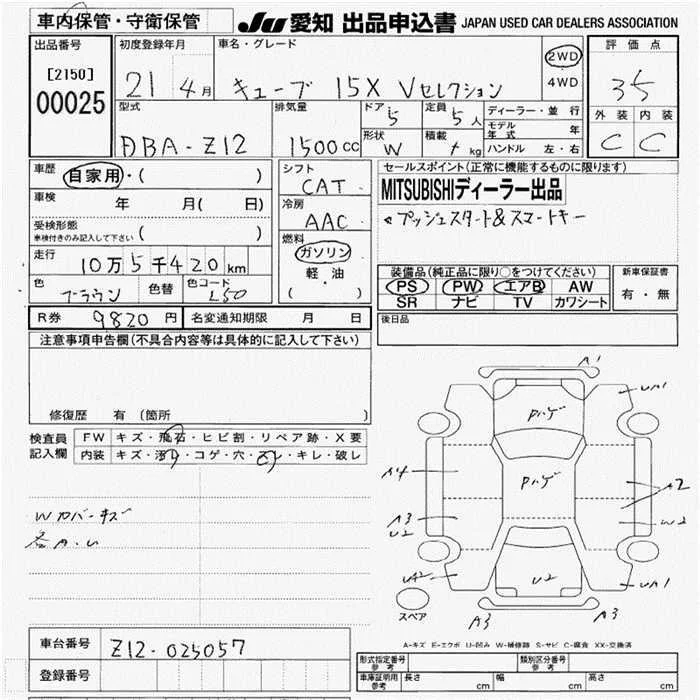 車内保管・守衛保管
JU 愛知 出品申込書 JAPAN USED CAR DEALERS ASSOCIATION
出品番号
[2150]
00025
初度登録年月
21 4月
車名・グレード
キューブ 15X Vセレクション
2WD
4WD
評価点
35
外装 内装
C C
型式
DBA-Z12
排気量
1500cc
ドア 5
定員 5人
形状 W
積載 kg
ディーラー・並行
モデル年式 年
ハンドル 左・右
車歴
自家用・( )
車検 年 月( 日)
受検形態
車検付きのみ記入して下さい ( )
走行
10万5千420km
色 ブラウン 色替 色コード L50
シフト
CAT
冷房
AAC
燃料
ガソリン
軽・油
( )
セールスポイント(正常に機能するものに限ります)
MITSUBISHIディーラー出品
プッシュスタート&スマートキー
装備品(純正品に限り○をつけてください)
PS PW エアB AW
SR ナビ TV カワシート
新車保証書
有・無
R券 9820円 名変通知期限 月 日
後日品
注意事項申告欄(不具合内容等は具体的に記入して下さい)
修復歴 有 (箇所
検査員記入欄
FW キズ・飛石・ヒビ割・リペア跡・X要
内装 キズ・汚れ・コゲ・穴・スレ・キレ・破レ
Wカバーキズ
各A.U
A1
UA1
Pハゲ
A4
Pハゲ
A2
A3
U2
W2
UA2
U2
UA1
スペア
A3
A3
A-キズ E-エクボ U-凹み W-補修跡 S-サビ C-腐食 XX-交換済
車台番号 Z12-025057
登録番号
形式指定番号参考
類別区分番号参考
車庫証明用参考 長さ cm 幅 cm 高さ cm